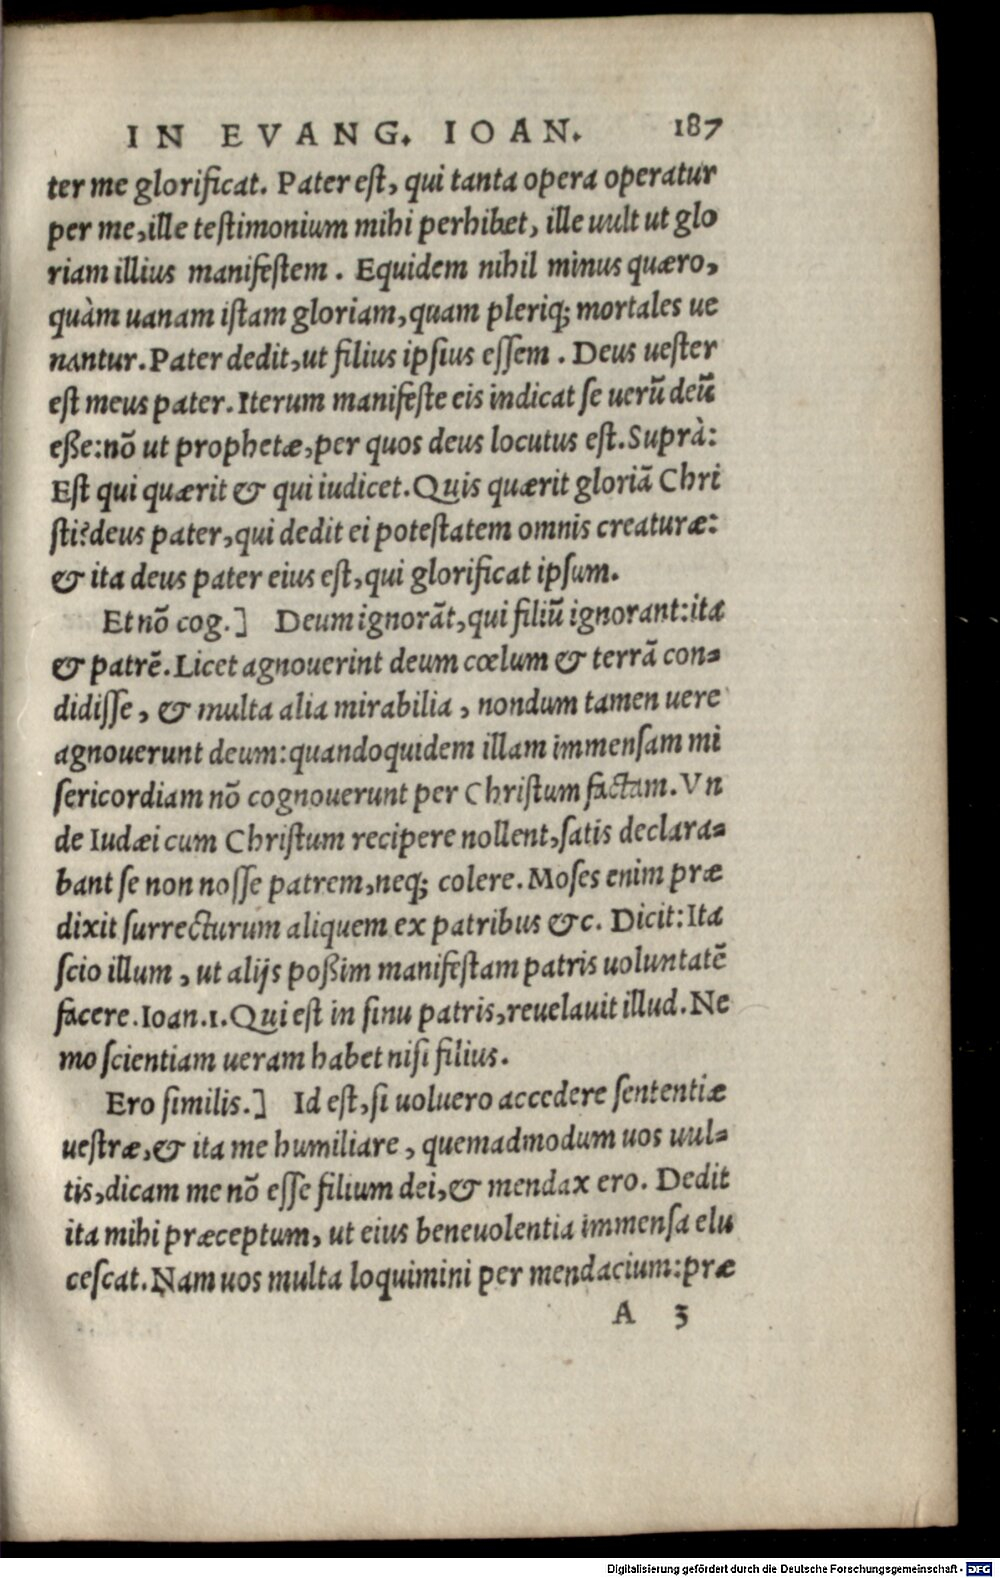 IN EVANG. IOAN. 187
ter me glorificat. Pater est, qui tanta opera operatur
per me, ille testimonium mihi perhibet, ille uult ut glo
riam illius manifestem. Equidem nihil minus quæro,
quàm uanam istam gloriam, quam pleriq; mortales ue
nantur. Pater dedit, ut filius ipsius essem. Deus uester
est meus pater. Iterum manifeste eis indicat se uerū deū
eße: nō ut prophetæ, per quos deus locutus est. Suprà:
Est qui quærit & qui iudicet. Quis quærit gloriā Chri
sti? deus pater, qui dedit ei potestatem omnis creaturæ:
& ita deus pater eius est, qui glorificat ipsum.
Et nō cog.] Deum ignorāt, qui filiū ignorant: ita
& patrē. Licet agnouerint deum cœlum & terrā con=
didisse, & multa alia mirabilia, nondum tamen uere
agnouerunt deum: quandoquidem illam immensam mi
sericordiam nō cognouerunt per Christum factam. Vn
de Iudæi cum Christum recipere nollent, satis declara=
bant se non nosse patrem, neq; colere. Moses enim præ
dixit surrecturum aliquem ex patribus &c. Dicit: Ita
scio illum, ut alijs poßim manifestam patris uoluntatē
facere. Ioan.1. Qui est in sinu patris, reuelauit illud. Ne
mo scientiam ueram habet nisi filius.
Ero similis.] Id est, si uoluero accedere sententiæ
uestræ, & ita me humiliare, quemadmodum uos uul=
tis, dicam me nō esse filium dei, & mendax ero. Dedit
ita mihi præceptum, ut eius beneuolentia immensa elu
cescat. Nam uos multa loquimini per mendacium: præ
A 3
Digitalisierung gefördert durch die Deutsche Forschungsgemeinschaft - DFG